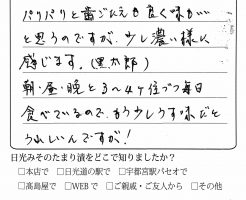 パリパリと歯ごたえも良く味が…
と思うのですが、少し濃い様に
感じます。(黒太郎)
朝・昼・晩と3〜4ヶ位づつ毎日
食べているので、もう少しうす味だと
うれしいんですが!
日光みそのたまり漬をどこで知りましたか?
□本店で □日光道の駅で □宇都宮駅パセオで
□高島屋で □WEBで □ご親戚・ご友人から □その他